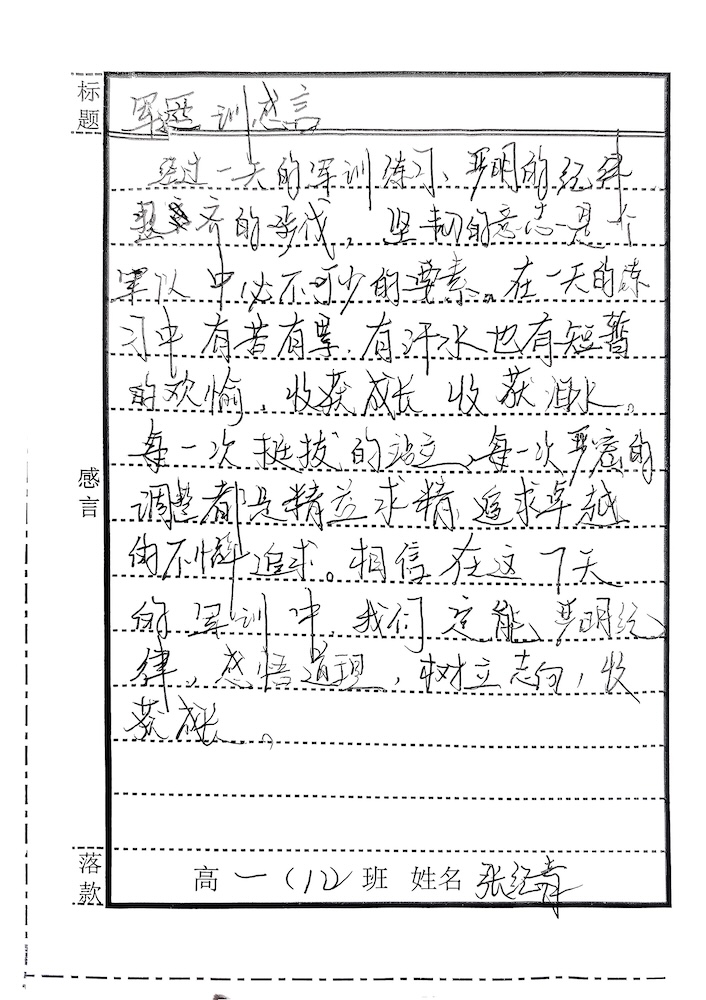 标题
军训感言
经过一天的军训练习、严明的纪律
整齐的步伐，坚韧的意志是个
军队中必不可少的要素。在一天的练
习中有苦有累，有汗水也有短暂
的欢愉，收获成长 收获泪水。
每一次挺拔的站立、每一次严密的
调整都是精益求精 追求卓越
的不懈追求。相信在这7天
的军训中，我们定能严明纪
律，感悟道理，树立志向，收
获成长。
感言
落款
高一（12）班 姓名 张经青